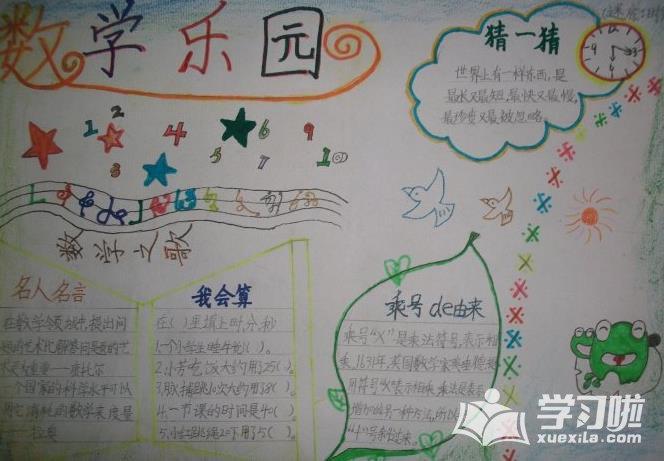 数学乐园
猜一猜
世界上有一样东西,是
最长又最短,最快又最慢,
最珍贵又最被忽略。
1 2 3 4 5 6 7 9 10
数学之歌
名人名言
在数学领域中,提出问
题的艺术比解答问题的艺
术更为重要—康托尔
一个国家的科学水平可以
用它消耗的数学来度量
—拉奥
我会算
在( )里填上时分秒
1.一个小学生睡午觉( )。
2.小芳吃饭大约用了25( )
4.一节课的时间是40( )
乘号de由来
乘号“X”是乘法符号,表示相
乘,1631年,英国数学家奥
用符号“X”表示相乘。乘法是表示
增加的另一种方法,所以
学习啦
xuexila.com